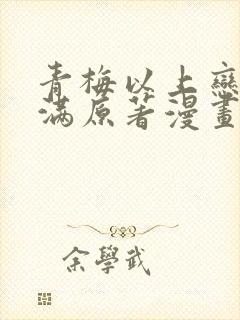 青梅以上戀
滿原著漫畫
余學武